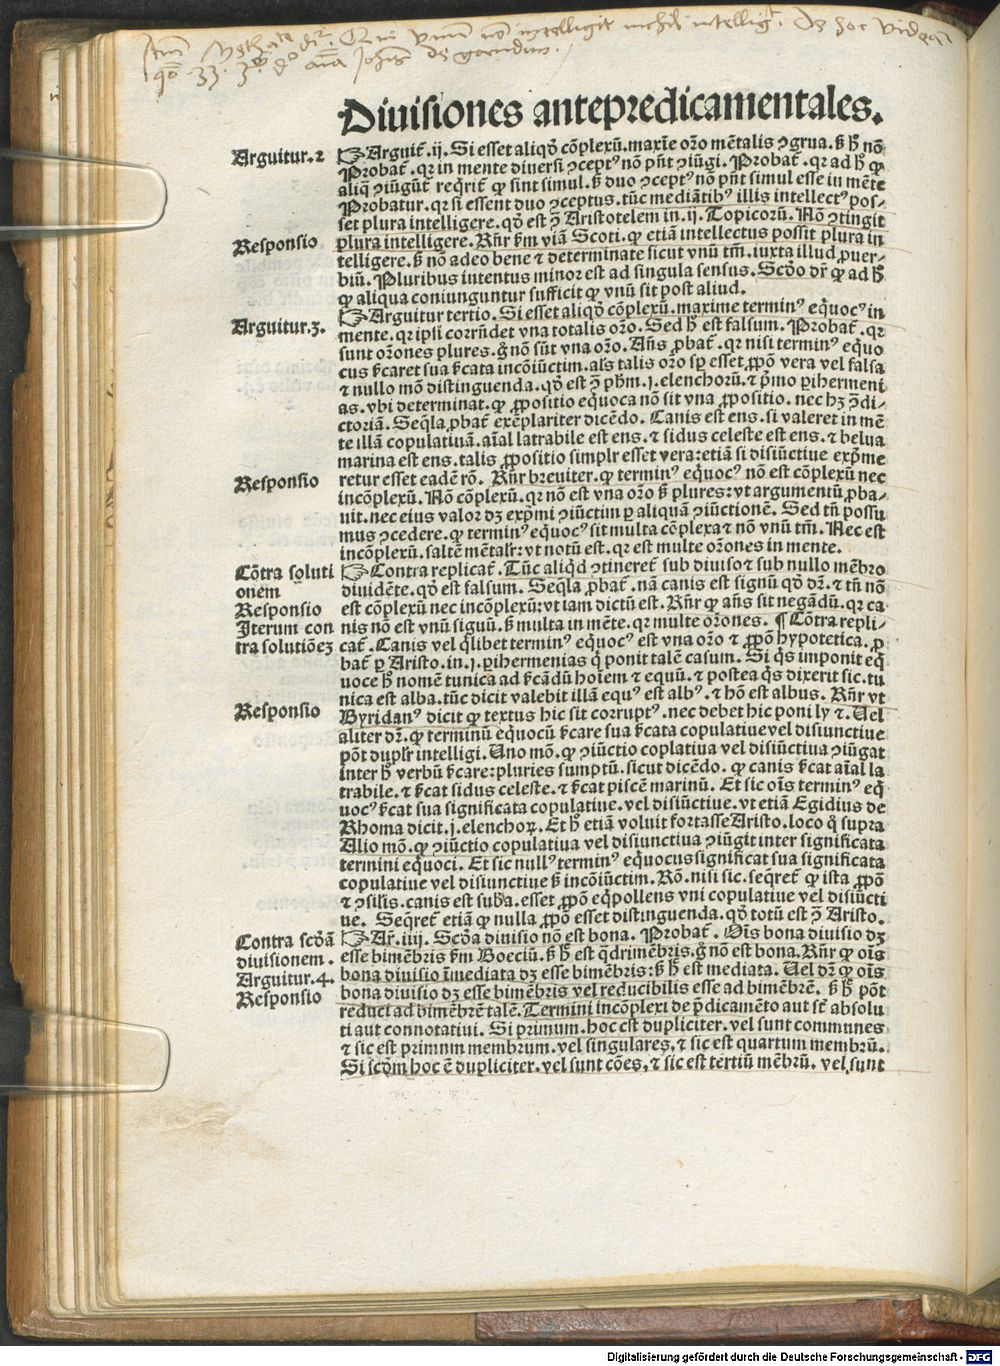 Diuisiones antepredicamentales.
Arguitur.2
☞Arguit̃.ij. Si esset aliqđ cõplexũ.maxĩe or̃o mẽtalis ꝯgrua. s̃ ħ nõ
Probat̃.qr in mente diuersi ꝯceptꝰ nõ pñt ꝯiũgi. Probat̃.qr ad ħ ꝙ
aliq̃ ꝯiũgũt̃ reqrit̃ ꝙ sint simul. s̃ duo ꝯceptꝰ nõ pñt simul esse in mẽte
Probatur.qr si essent duo ꝯceptus.tũc mediãtibꝰ illis intellectꝰ pos-
set plura intelligere.qđ est ꝯ̃ Aristotelem in.ij. Topicorũ. Nõ ꝯtingit
Responsio
plura intelligere. Rñr s̃m viã Scoti.ꝙ etiã intellectus possit plura in
telligere. s̃ nõ adeo bene ⁊ determinate sicut vnũ tm̃.iuxta illud ꝓuer-
biũ. Pluribus intentus minor est ad singula sensus. Scđo dr̃ ꝙ ad ħ
ꝙ aliqua coniunguntur sufficit ꝙ vnũ sit post aliud.
Arguitur.3.
☞Arguitur tertio. Si esset aliqđ cõplexũ.maxime terminꝰ eq̃uocꝰ in
mente.qr ipsi corrñdet vna totalis or̃o. Sed ħ est falsum. Probat̃.qr
sunt or̃ones plures.g̃ nõ sũt vna or̃o. Añs ꝓbat̃.qr nisi terminꝰ equo
cus s̃caret sua s̃cata incõiũctim.als̃ talis or̃o sp̃ esset ꝓpõ vera vel falsa
⁊ nullo mõ distinguenda.qđ est ꝯ̃ ph̃m.j.elenchorũ.⁊ p̃mo ꝑihermeni
as.vbi determinat.ꝙ ꝓpositio equoca nõ sit vna ꝓpositio.nec hꝫ ꝯ̃di-
ctoriã. Seq̃la ꝓbat̃ exẽplariter dicẽdo. Canis est ens.si valeret in mẽ
te illã copulatiuã.aĩal latrabile est ens.⁊ sidus celeste est ens.⁊ belua
marina est ens.talis ꝓpositio simplr esset vera:etiã si disiũctiue exp̃me
Responsio
retur esset eadẽ rõ. Rñr breuiter.ꝙ terminꝰ eq̃uocꝰ nõ est cõplexũ nec
incõplexũ. Nõ cõplexũ.qr nõ est vna or̃o s̃ plures:vt argumentũ ꝓba-
uit.nec eius valor dꝫ exp̃mi ꝯiũctim ꝑ aliquã ꝯiũctionẽ. Sed tñ possu
mus ꝯcedere.ꝙ terminꝰ eq̃uocꝰ sit multa cõplexa ⁊ nõ vnũ tm̃. Nec est
incõplexũ.saltẽ mẽtalr:vt notũ est.qr est multe or̃ones in mente.
Cõtra soluti
onem
☞Contra replicat̃. Tũc aliqđ ꝯtineret̃ sub diuiso ⁊ sub nullo mẽbro
diuidẽte.qđ est falsum. Seq̃la ꝓbat̃.nã canis est signũ qđ dr̃.⁊ tñ nõ
Responsio
est cõplexũ nec incõplexũ:vt iam dictũ est. Rñr ꝙ añs sit negãdũ.qr ca
Iterum con
tra solutiõeꝫ
nis nõ est vnũ signũ. s̃ multa in mẽte.qr multe or̃ones. ¶ Cõtra repli-
cat̃. Canis vel q̃libet terminꝰ eq̃uocꝰ est vna or̃o ⁊ ꝓpõ hypotetica.ꝓ
bat̃ ꝑ Aristo.in.j.ꝑihermenias q̃ ponit talẽ casum. Si q̃s imponit eq̃
uoce ħ nomẽ tunica ad s̃cãdũ hoĩem ⁊ equũ.⁊ postea q̃s dixerit sic.tu
nica est alba.tũc dicit valebit illã equꝰ est albꝰ.⁊ hõ est albus. Rñr vt
Responsio
Byridanꝰ dicit ꝙ textus hic sit corruptꝰ.nec debet hic poni ly ⁊. Uel
aliter dr̃.ꝙ terminũ eq̃uocũ s̃care sua s̃cata copulatiue vel disiunctiue
põt duplr intelligi. Uno mõ.ꝙ ꝯiũctio coplatiua vel disiũctiua ꝯiũgat
inter ħ verbũ s̃care:pluries sumptũ.sicut dicẽdo.ꝙ canis s̃cat aĩal la
trabile.⁊ s̃cat sidus celeste.⁊ s̃cat piscẽ marinũ. Et sic oĩs terminꝰ eq̃
uocꝰ s̃cat sua significata copulatiue.vel disiũctiue.vt etiã Egidius de
Rhoma dicit.j.elenchoꝝ. Et ħ etiã voluit fortasse Aristo.loco q̃ supra
Alio mõ.ꝙ ꝯiũctio copulatiua vel disiunctiua ꝯiũgit inter significata
termini equoci. Et sic nullꝰ terminꝰ eq̃uocus significat sua significata
copulatiue vel disiunctiue s̃ incõiũctim. Rõ.nisi sic.seq̃ret̃ ꝙ ista ꝓpõ
⁊ ꝯsilis.canis est suba̅.esset ꝓpõ eq̃pollens vni copulatiue vel disiũcti
ue. Seq̃ret̃ etiã ꝙ nulla ꝓpõ esset distinguenda.qđ totũ est ꝯ̃ Aristo.
Contra scđã
diuisionem.
Arguitur.4.
Responsio
☞Ar̃.iiij. Scđa diuisio nõ est bona. Probat̃. Oĩs bona diuisio dꝫ
esse bimẽbris s̃m Boeciũ. s̃ ħ est q̃drimẽbris.g̃ nõ est bona. Rñr ꝙ oĩs
bona diuisio ĩmediata dꝫ esse bimẽbris: s̃ ħ est mediata. Uel dr̃ ꝙ oĩs
bona diuisio dꝫ esse bimẽbris vel reducibilis esse ad bimẽbrẽ. s̃ ħ põt
reduci ad bimẽbrẽ talẽ. Termini incõplexi de p̃dicamẽto aut st̃ absolu
ti aut connotatiui. Si primum.hoc est dupliciter.vel sunt communes
⁊ sic est primum membrum.vel singulares.⁊ sic est quartum membrũ.
Si scđm hoc ẽ dupliciter.vel sunt cões.⁊ sic est tertiũ mẽbrũ. vel sunt
Digitalisierung gefördert durch die Deutsche Forschungsgemeinschaft - DFG